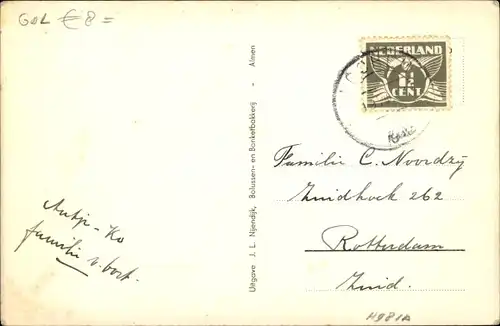 GOL € 8 =
NEDERLAND
1½
CENT
Familie C. Noordzij
Zuidhoek 262
Rotterdam
Zuid.
Antje - Ko
familie v. bort.
Uitgave J. L. Nijendijk, Bolussen- en Banketbakkerij - Almen
H981A